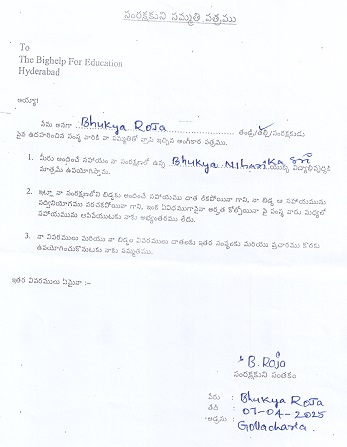 సంరక్షకుని సమ్మతి పత్రము
To
The Bighelp For Education
Hyderabad
అయ్యా!
నేను అనగా Bhukya Roja తండ్రి/తల్లి/సంరక్షకుడు
పైన ఉదహరించిన సంస్థ వారికి నా సమ్మతితో వ్రాసి ఇచ్చిన అంగీకార పత్రము.
1. మీరు అందించే సహాయం నా సంరక్షణలో ఉన్న Bhukya Niharika Sri యొక్క విద్యాభివృద్ధికి
మాత్రమే ఉపయోగిస్తాను.
2. ఇట్లా నా సంరక్షణలోని బిడ్డకు అందించే సహాయము దాత లేకపోయినా గాని, నా బిడ్డ ఆ సహాయమును
సద్వినియోగము పరచకపోయినా గాని, ఇంక ఏవిధముగానైనా అర్హత కోల్పోయినా పై సంస్థ వారు మధ్యలో
సహాయమును ఆపివేయుటకు నాకు అభ్యంతరము లేదు.
3. నా వివరములు మరియు నా బిడ్డల వివరములు దాతలకు ఇతర సంస్థలకు మరియు ప్రచారము కొరకు
ఉపయోగించుకొనుటకు నాకు సమ్మతము.
ఇతర వివరములు ఏమైనా :-
B. Roja
సంరక్షకుని సంతకం
పేరు : Bhukya Roja
తేది : 07-04-2025
అడ్రసు : Gollacharla.